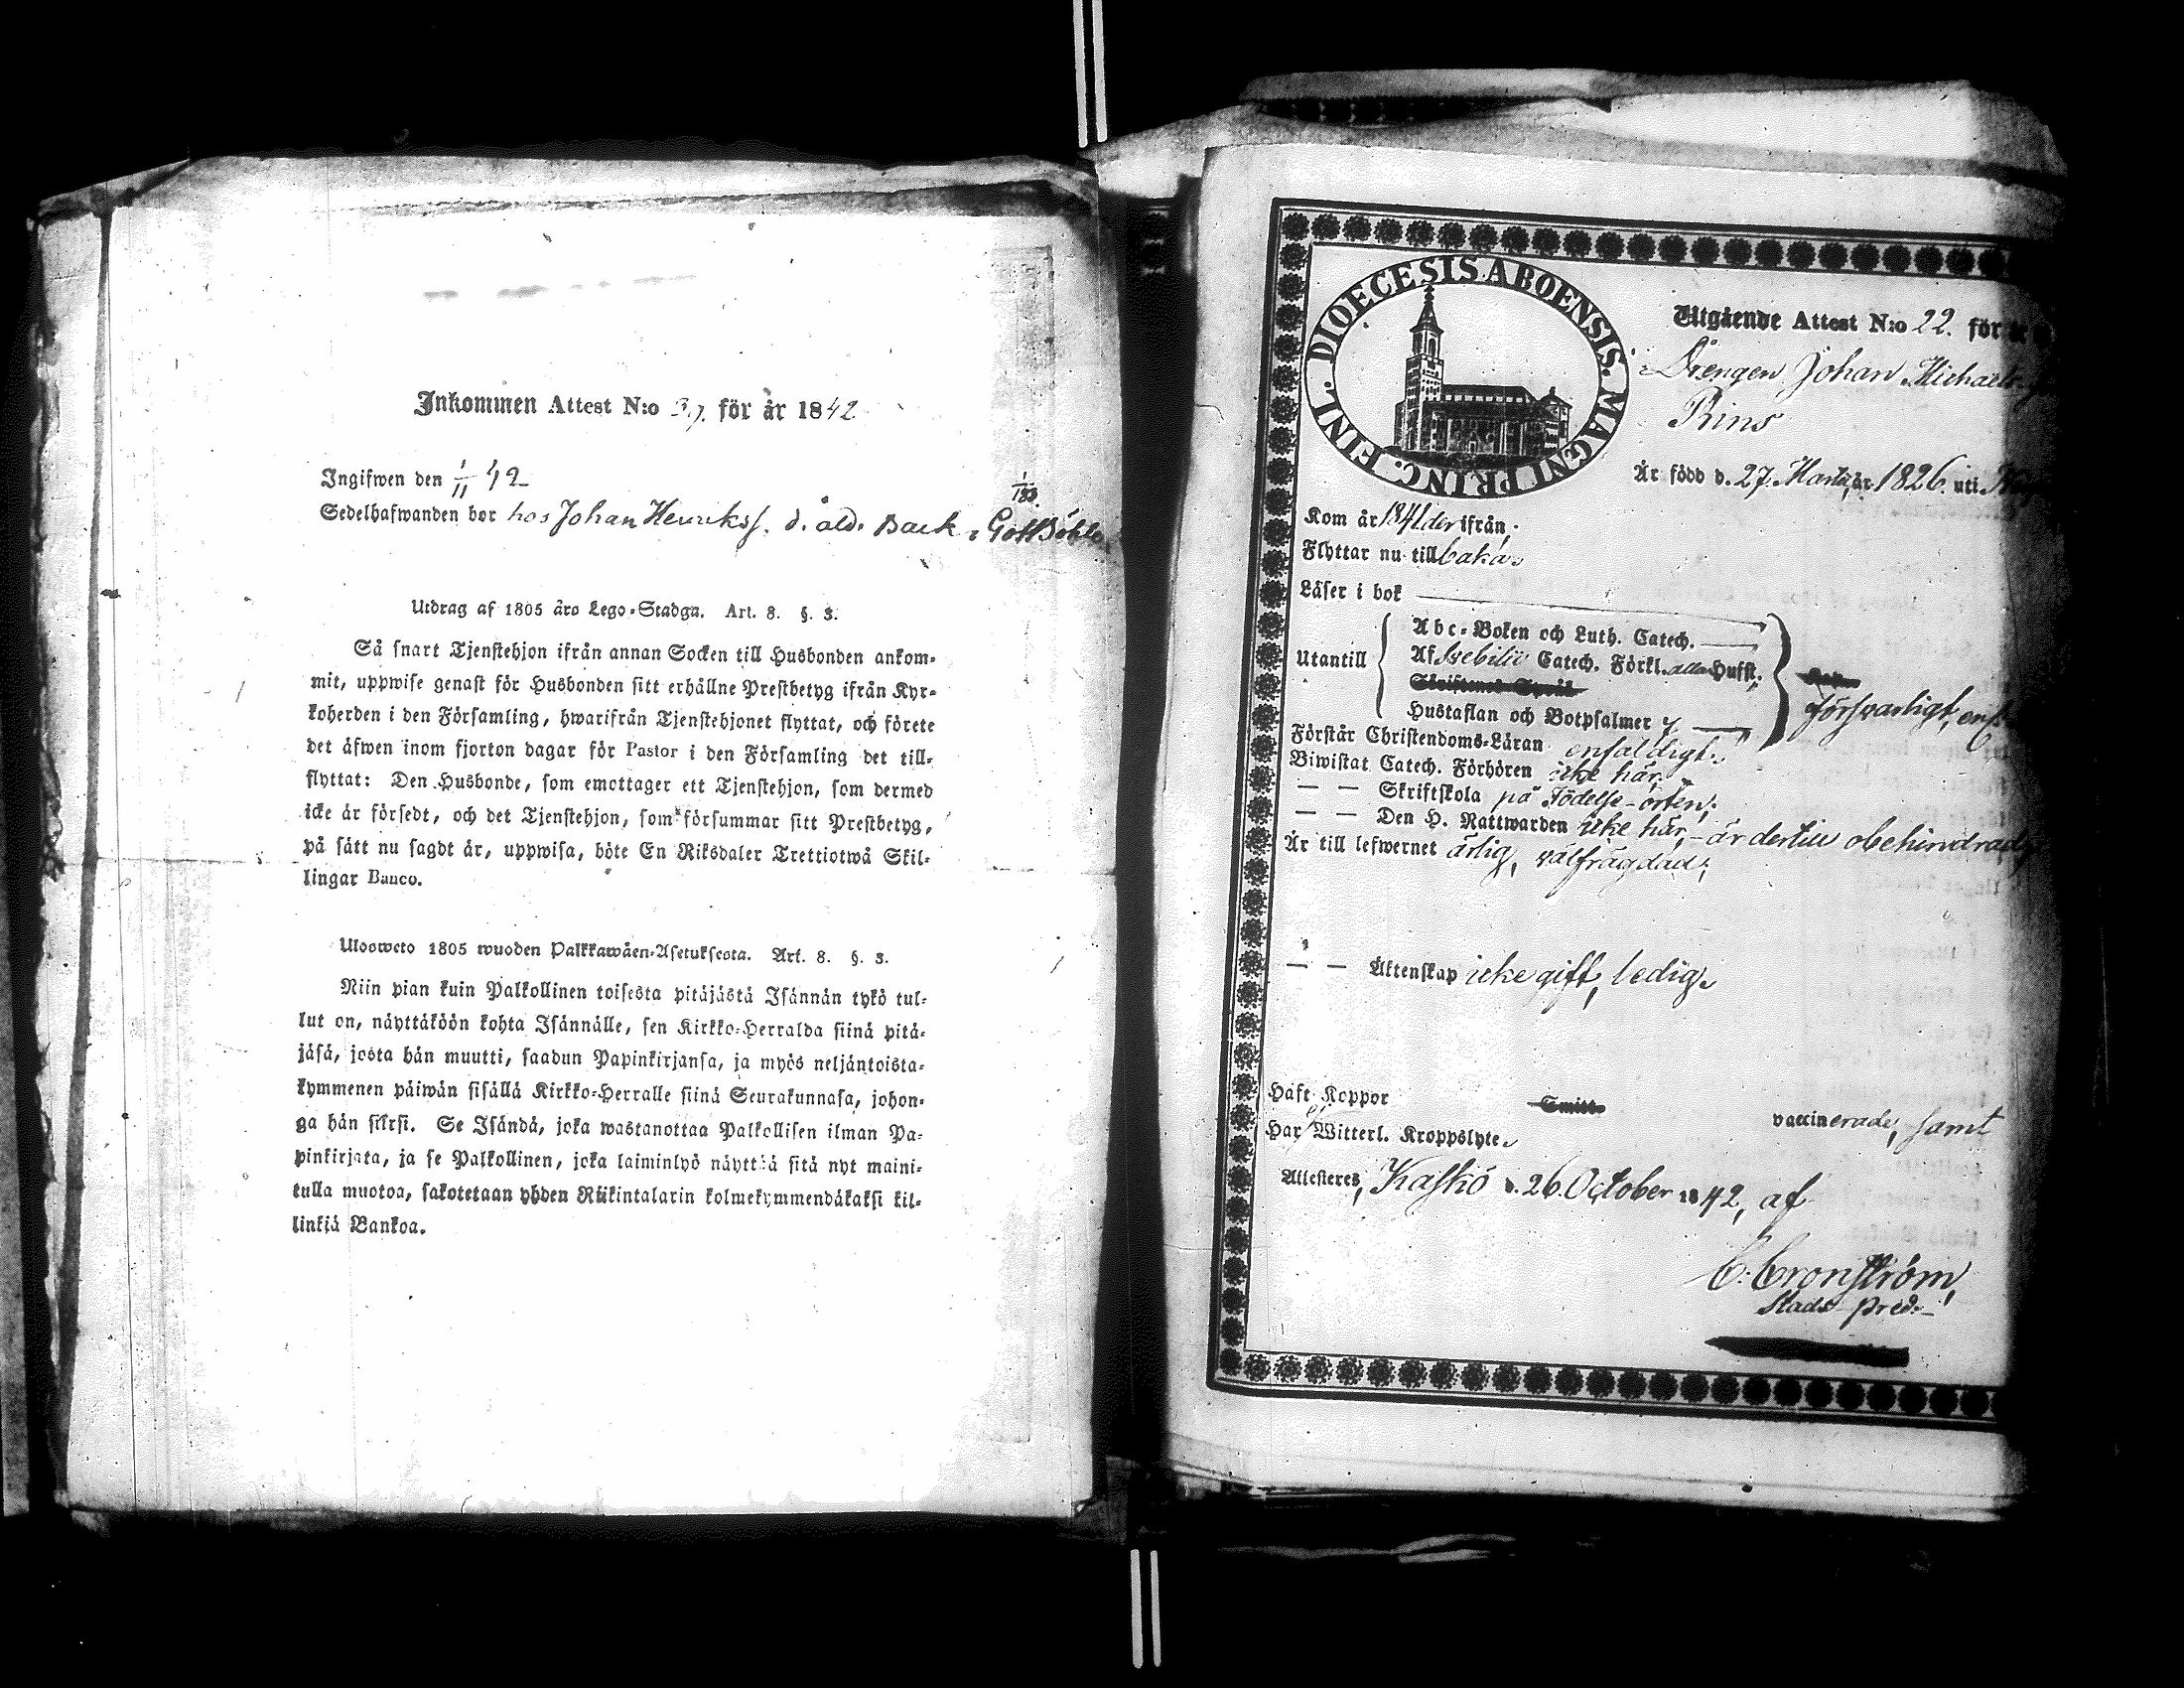 Inkommen Attest N:o 39. för år 1842
Ingifwen den 1/11 42
1/183.
Sedelhafwanden bor hos Johan Henrikss. d. äld. Back i Gottböhle
Utdrag af 1805 års Lego-Stadga. Art. 8. §. 3.
Så snart Tjenstehjon ifrån annan Socken till Husbonden ankom-
mit, uppwise genast för Husbonden sitt erhållne Prestbetyg ifrån Kyr-
koherden i den Församling, hwarifrån Tjenstehjonet flyttat, och förete
det äfwen inom fjorton dagar för Pastor i den Församling det till-
flyttat: Den Husbonde, som emottager ett Tjenstehjon, som dermed
icke är försedt, och det Tjenstehjon, som försummar sitt Prestbetyg,
på sätt nu sagdt är, uppwisa, böte En Riksdaler Trettiotwå Skil-
lingar Banco.
Ulosweto 1805 wuoden Palkkawäen-Asetuksesta. Art. 8. §. 3.
Niin pian kuin Palkollinen toisesta pitäjästä Isännän tykö tul-
lut on, näyttäköön kohta Isännälle, sen Kirkko-Herralda siinä pitä-
jäsä, josta hän muutti, saadun Papinkirjansa, ja myös neljäntoista-
kymmenen päiwän sisällä Kirkko-Herralle siinä Seurakunnasa, johon-
ga hän siirsi. Se Isändä, joka wastanottaa Palkollisen ilman Pa-
pinkirjata, ja se Palkollinen, joka laiminlyö näyttää sitä nyt maini-
tulla muotoa, sakotetaan yhden Riikintalarin kolmekymmendäkaksi kil-
linkiä Bankoa.
DIOECESIS ABOENSIS. MAGNI PRINC. FINL.
Utgående Attest N:o 22. för
Drengen Johan Michaels
Rins
Är född d. 27. Martii år 1826. uti
Kom år 1841 derifrån;
Flyttar nu tillbaka.
Läser i bok
Utantill
Abc-Boken och Luth. Catech.
Af Svebilii Catech. Förkl. alla Hufst.
Skriftenes Språk
Hustaflan och Botpsalmer 7
försvarligt,
Förstår Christendoms-Läran enfaldigt.
Biwistat Catech. Förhören icke här,
— — Skriftskola på Födelse-orten;
— — Den H. Nattwarden icke här, — är dertill obehindrad
Är till lefwernet ärlig, välfrägdad;
— — Äktenskap icke gift, ledig.
Haft Koppor Smitt. vaccinerade, samt
Har ej Witterl. Kroppslyte.
Attesteres, Kaskö d. 26. October 1842, af
C. Cronström,
Stads-pred.